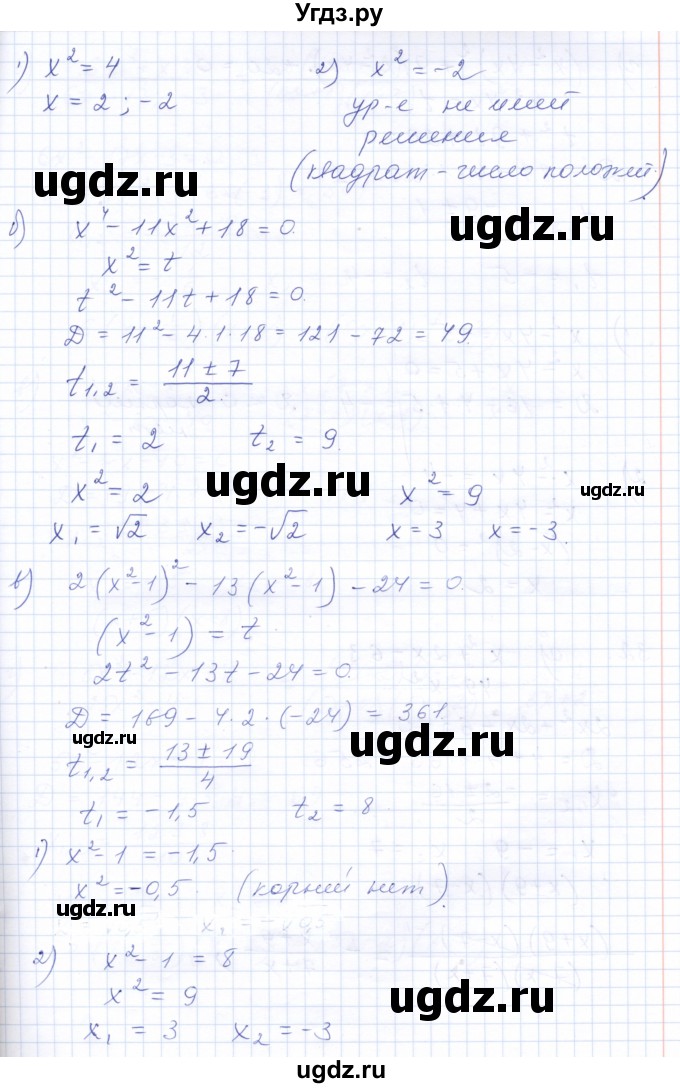 Угдз.ру
1) x² = 4
x = 2 ; -2
2) x² = -2
ур-е не имей
решения
(квадрат - число положей.)
ugdz.ru
ugdz.ru
б) x⁴ - 11x² + 18 = 0.
x² = t
t² - 11t + 18 = 0.
D = 11² - 4·1·18 = 121 - 72 = 49.
t₁,₂ = (11 ± 7)/2.
t₁ = 2 t₂ = 9.
ugdz.ru
ugdz.ru
x² = 2 x² = 9
x₁ = √2 x₂ = -√2 x = 3 x = -3.
в) 2(x²-1)² - 13(x²-1) - 24 = 0.
(x²-1) = t
2t² - 13t - 24 = 0.
D = 169 - 4·2·(-24) = 361.
ugdz.ru
ugdz.ru
t₁,₂ = (13 ± 19)/4
t₁ = -1,5 t₂ = 8
1) x² - 1 = -1,5.
x² = -0,5. (корней нет).
ugdz.ru
2) x² - 1 = 8
x² = 9
x₁ = 3 x₂ = -3
ugdz.ru
ugdz.ru